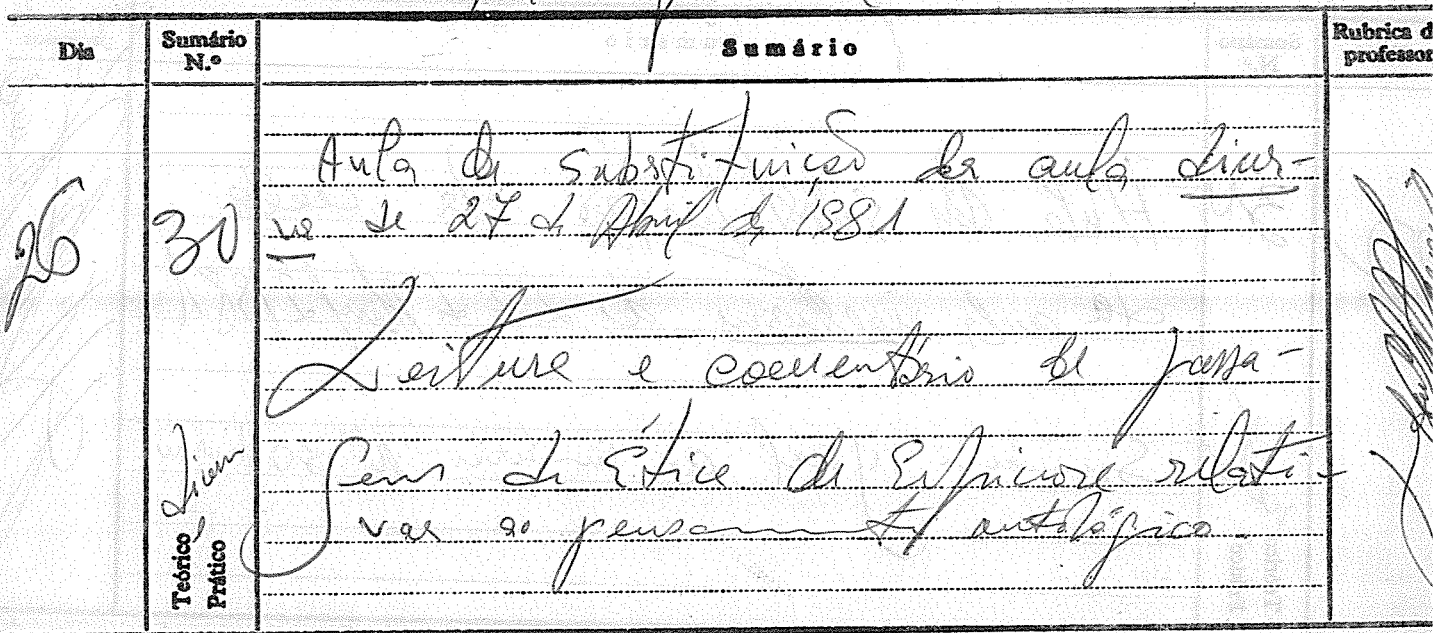 Dia
Sumário N.º
Sumário
Rubrica d
professor
26
30
Aula de substituição da aula diur-
na de 27 de Abril de 1981
Leitura e comentário de passa-
gens da Ética de Espinosa relati-
vas ao pensamento ontológico.
Teórico
Prático